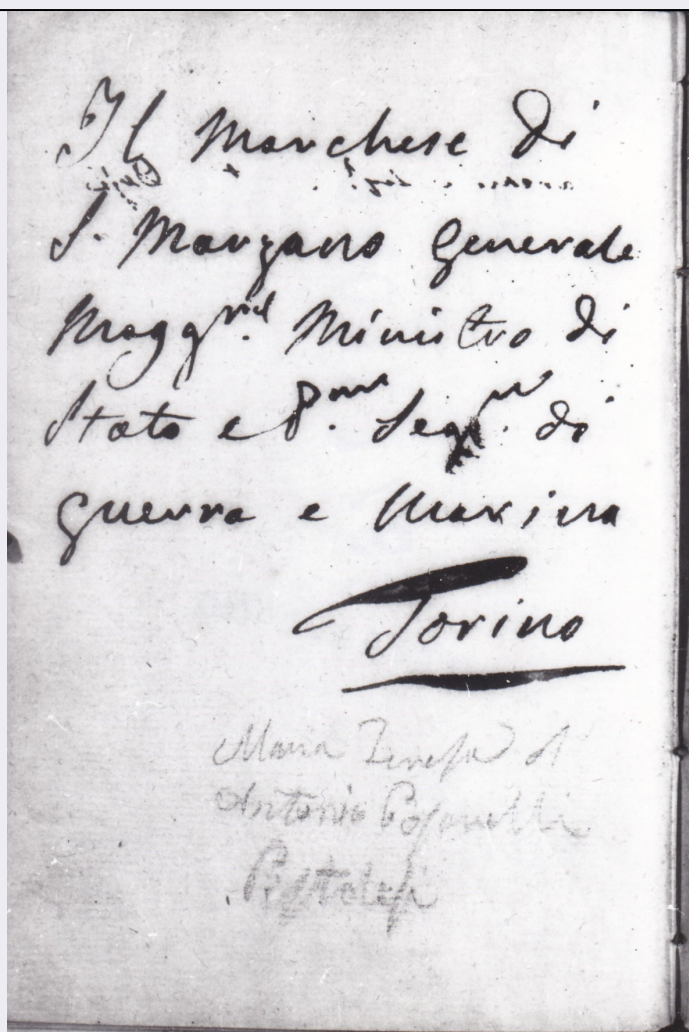 Il Marchese di
S. Marzano Generale
Magg.re Ministro di
Stato e P.mo Seg.rio di
guerra e Marina
Torino
Maria Teresa d
Antonio